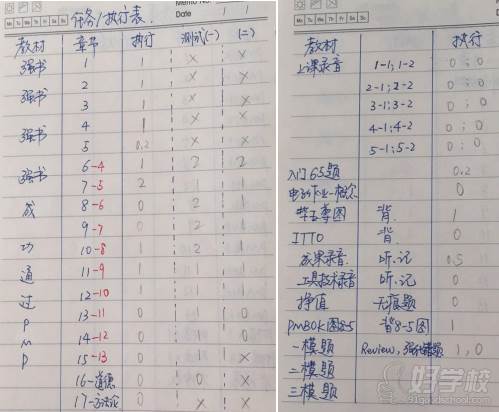 任务/执行表.
Memo No.
Date
Mo Tu We Th Fr Sa Su
教材 章节 执行 测试(一) (二)
强书 1 1 × ×
强书 2 1 × ×
3 1 × ×
强书 4 1 × ×
5 0.2 × ×
强书 6-4 1 2 2
7-5 2 1 1
成 8-6 0 2 1
9-7 0 2 1
功 10-8 1 2 1
通 11-9 1 1 1
过 12-10 1 1 1
P 13-11 0 1 1
M 14-12 0 1 0
P 15-13 0 1 ×
16-道德 0 0 ×
17-方法论 0 × ×
Mo Tu We Th Fr Sa Su
Date
教材 执行
上课录音 1-1; 1-2 0 ; 0
2-1; 2-2 0 ; 0
3-1; 3-2 0 ; 0
4-1; 4-2 0 ; 0
5-1; 5-2 0 ; 0
入门65题 0.2
电子作业-概念 0
华五尊图 背. 1
ITTO 背 0
录音. 听.记 0.5
工具技术录音 听.记 0
挣值 无痕题 0
PMBOK图8-5 背8-5图 1
一模题 Review, 强化错题 1, 0
二模题
三模题
好学校